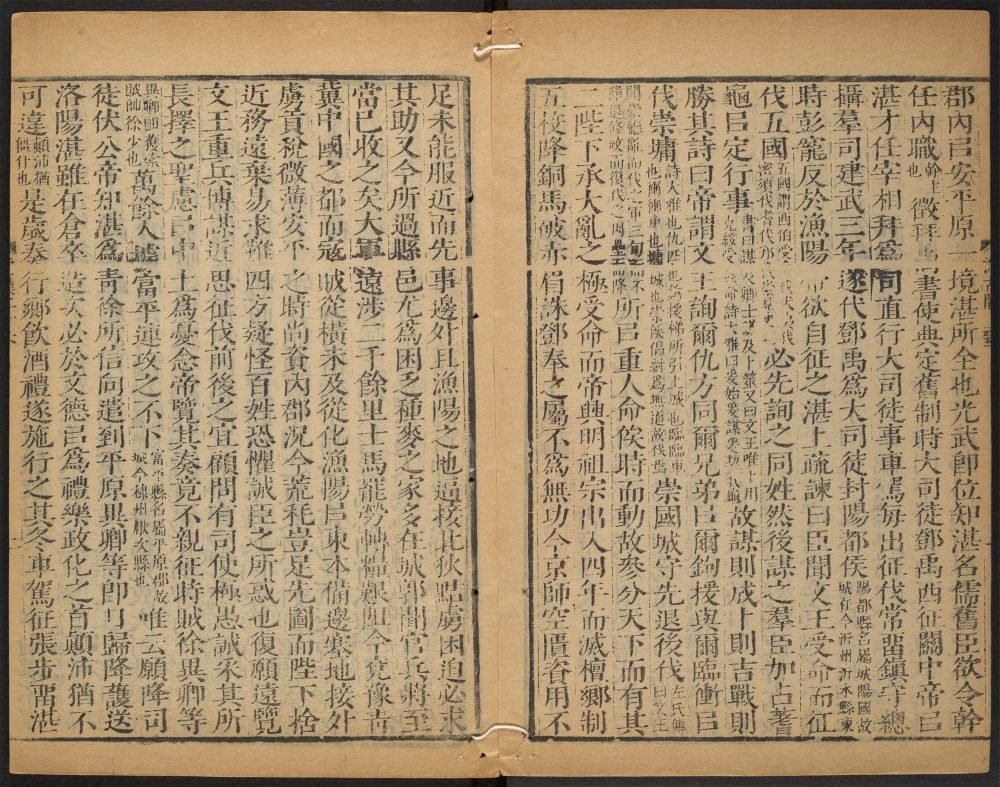 郡內㠯安平原一境湛所全也光武卽位知湛名儒舊臣欲令幹
任內職幹主也徵拜尚書使典定舊制時大司徒鄧禹西征關中帝㠯
湛才任宰相拜爲司直行大司徒事車駕每出征伐常畱鎮守總
攝羣司建武三年遂代鄧禹爲大司徒封陽都侯陽都縣名屬城陽國故城在今沂州沂水縣東
時彭寵反於漁陽帝欲自征之湛上疏諫曰臣聞文王受命而征
伐五國五國謂西伯受必先詢之同姓然後謀之羣臣加占蓍
龜㠯定行事故謀則成卜則吉戰則
勝其詩曰帝謂文王詢爾仇方同爾兄弟㠯爾鉤援與爾臨衝㠯
伐崇墉崇國城守先退後伐
所㠯重人命俟時而動故參分天下而有其
二陛下承大亂之極受命而帝興明祖宗出入四年而滅檀鄉制
五校降銅馬破赤眉誅鄧奉之屬不爲無功今京師空匱資用不
足未能服近而先事邊外且漁陽之地逼接北狄黠虜困迫必求
其助又今所過縣邑尤爲困乏種麥之家多在城郭聞官兵將至
當已收之矣大軍遠涉二千餘里士馬罷勞轉糧艱阻今兗豫青
冀中國之都而寇賊從橫未及從化漁陽㠯東本備邊塞地接外
虜貢稅微薄安平之時尚資內郡況今荒耗豈足先圖而陛下捨
近務遠棄易求難四方疑怪百姓恐懼誠臣之所惑也復願遠覽
文王重兵博謀近思征伐前後之宜顧問有司使極愚誠采其所
長擇之聖慮㠯中土爲憂念帝覽其奏竟不親征時賊徐異卿等
萬餘人據富平連攻之不下富平縣名屬平原郡故城今棣州厭次縣也唯云願降司
徒伏公帝知湛爲青徐所信向遣到平原異卿等卽日歸降護送
洛陽湛雖在倉卒造次必於文德㠯爲禮樂政化之首顚沛猶不
可違顚沛猶僵仆也是歲奏行鄉飮酒禮遂施行之其冬車駕征張步畱湛